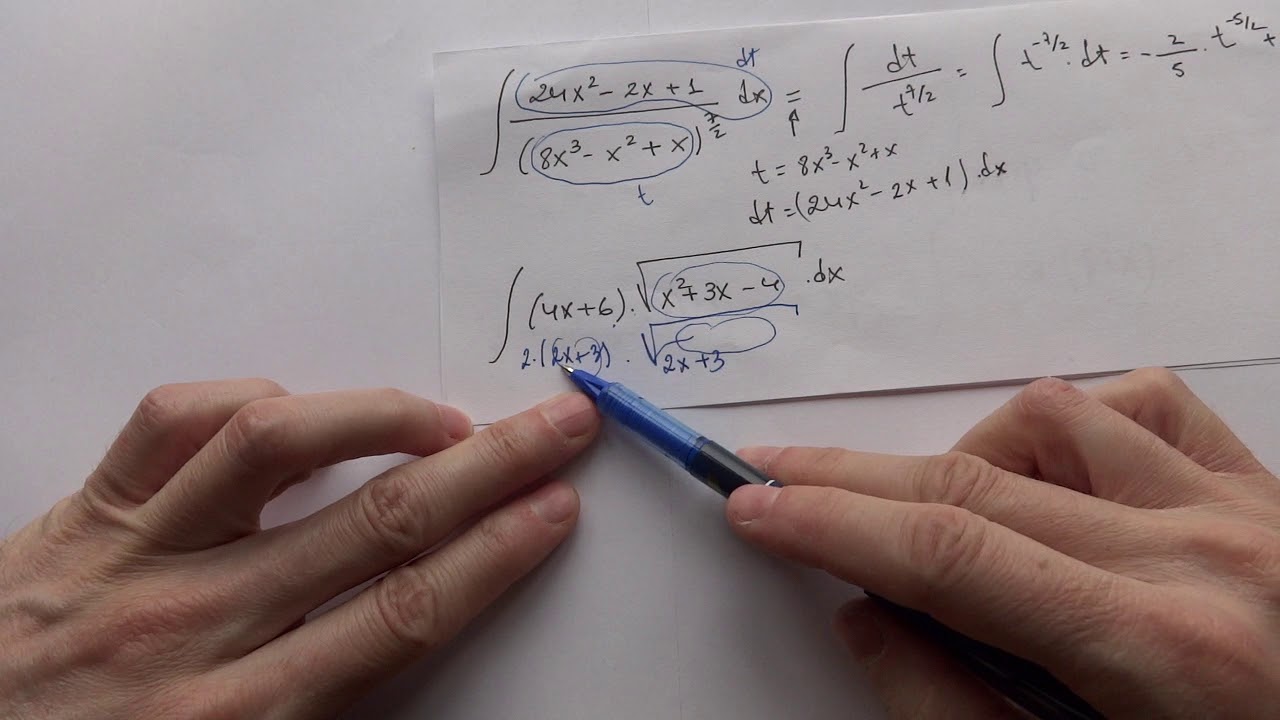 ∫ (24x² - 2x + 1) / (8x³ - x² + x)^(7/2) dx = ∫ dt / t^(7/2) = ∫ t^(-7/2) · dt = - 2/5 · t^(-5/2) +
dt
t
t = 8x³ - x² + x
dt = (24x² - 2x + 1) · dx
∫ (4x + 6) · √(x² + 3x - 4) · dx
2 · (2x + 3) · √
2x + 3